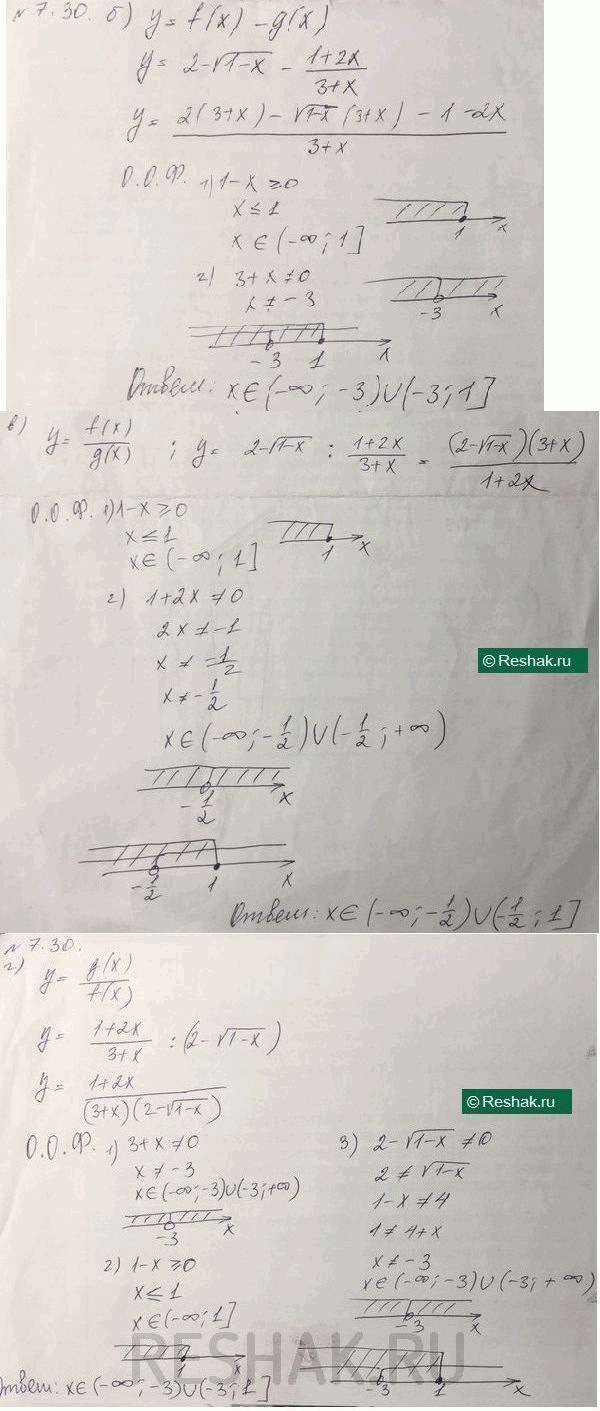 № 7.30. б) y = f(x) - g(x)
y = 2-√1-x - (1+2x)/(3+x)
y = (2(3+x) - √1-x (3+x) - 1 - 2x)/(3+x)
О.О.Ф. 1) 1-x ≥ 0
x ≤ 1
x ∈ (-∞; 1]
1 x
2) 3+x ≠ 0
x ≠ -3
-3 x
-3 1 x
Ответ: x ∈ (-∞; -3) ∪ (-3; 1]
в) y = f(x)/g(x) ; y = 2-√1-x : (1+2x)/(3+x) = ((2-√1-x)(3+x))/(1+2x)
О.О.Ф. 1) 1-x ≥ 0
x ≤ 1
x ∈ (-∞; 1]
1 x
2) 1+2x ≠ 0
2x ≠ -1
x ≠ -1/2
x ≠ -1/2
© Reshak.ru
x ∈ (-∞; -1/2) ∪ (-1/2; +∞)
-1/2 x
-1/2 1 x
Ответ: x ∈ (-∞; -1/2) ∪ (-1/2; 1]
№ 7.30.
г) y = g(x)/f(x)
y = (1+2x)/(3+x) : (2-√1-x)
y = (1+2x)/((3+x)(2-√1-x))
© Reshak.ru
О.О.Ф. 1) 3+x ≠ 0
x ≠ -3
x ∈ (-∞; -3) ∪ (-3; +∞)
-3 x
2) 1-x ≥ 0
x ≤ 1
x ∈ (-∞; 1]
1 x
3) 2-√1-x ≠ 0
2 ≠ √1-x
1-x ≠ 4
1 ≠ 4+x
x ≠ -3
x ∈ (-∞; -3) ∪ (-3; +∞)
-3 x
-3 1 x
RESHAK.RU
Ответ: x ∈ (-∞; -3) ∪ (-3; 1]